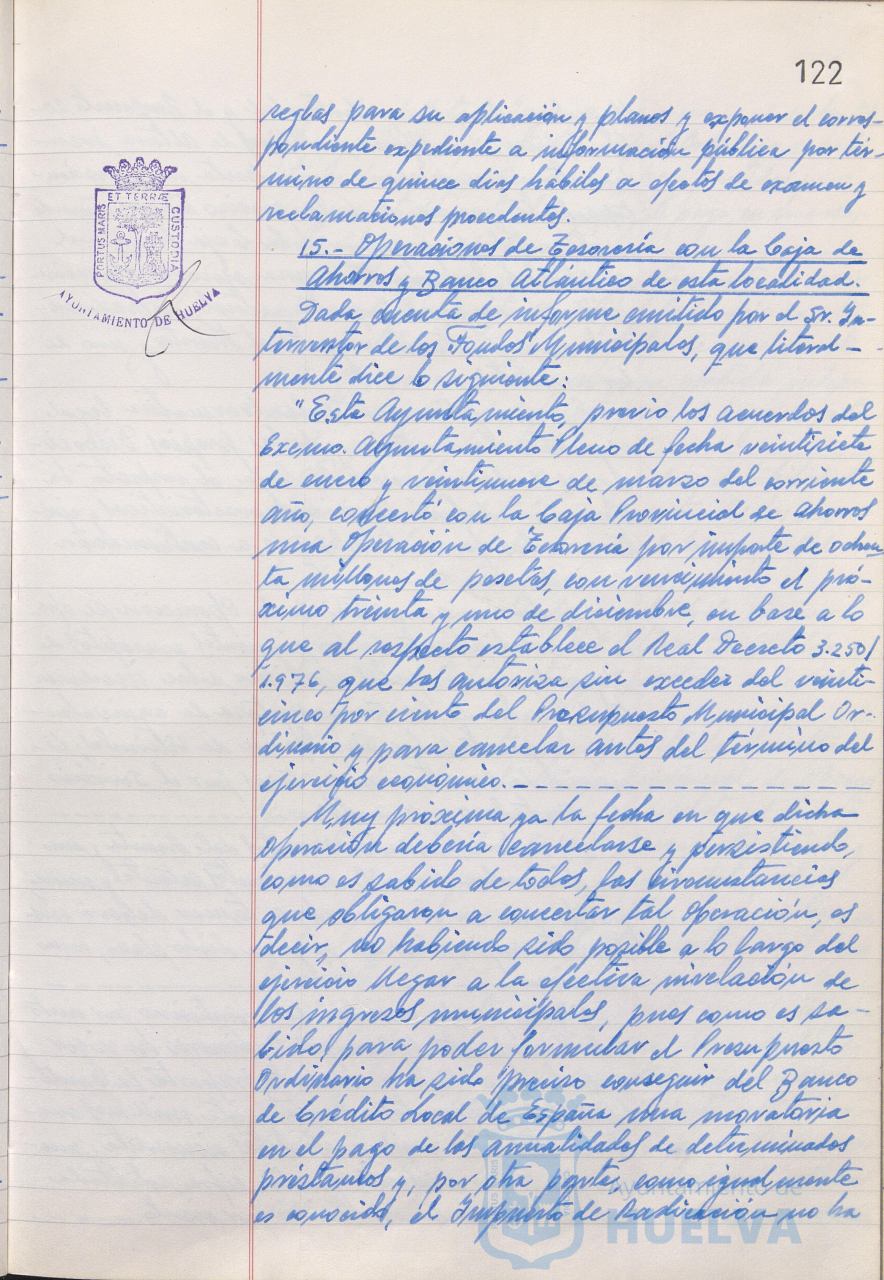 122
reglas para su aplicación y planos y exponer el corres-
pondiente expediente a información pública por tér-
mino de quince días hábiles a efectos de examen y
reclamaciones procedentes.
15.- Operaciones de Tesorería con la Caja de
Ahorros y Banco Atlántico de esta localidad.
Dada cuenta de informe emitido por el Sr. In-
terventor de los Fondos Municipales, que literal-
mente dice lo siguiente:
"Esta Ayuntamiento, previo los acuerdos del
Excmo. Ayuntamiento Pleno de fecha veintisiete
de enero y veintinueve de marzo del corriente
año, concertó con la Caja Provincial de Ahorros
una Operación de Tesorería por importe de ochen-
ta millones de pesetas, con vencimiento el pró-
ximo treinta y uno de diciembre, en base a lo
que al respecto establece el Real Decreto 3.250/
1.976, que las autoriza sin exceder del veinti-
cinco por ciento del Presupuesto Municipal Or-
dinario y para cancelar antes del término del
ejercicio económico.
Muy próxima ya la fecha en que dicha
Operación debería cancelarse y persistiendo,
como es sabido de todos, las circunstancias
que obligaron a concertar tal Operación, es
decir, no habiendo sido posible a lo largo del
ejercicio llegar a la efectiva nivelación de
los ingresos municipales, pues como es sa-
bido, para poder formular el Presupuesto
Ordinario ha sido preciso conseguir del Banco
de Crédito Local de España una moratoria
en el pago de las anualidades de determinados
préstamos y, por otra parte, como igualmente
es conocido, el Impuesto de Radicación no ha
PORTUS MARIS
ET TERRÆ
CUSTODIA
AYUNTAMIENTO DE HUELVA
Ayuntamiento de
HUELVA